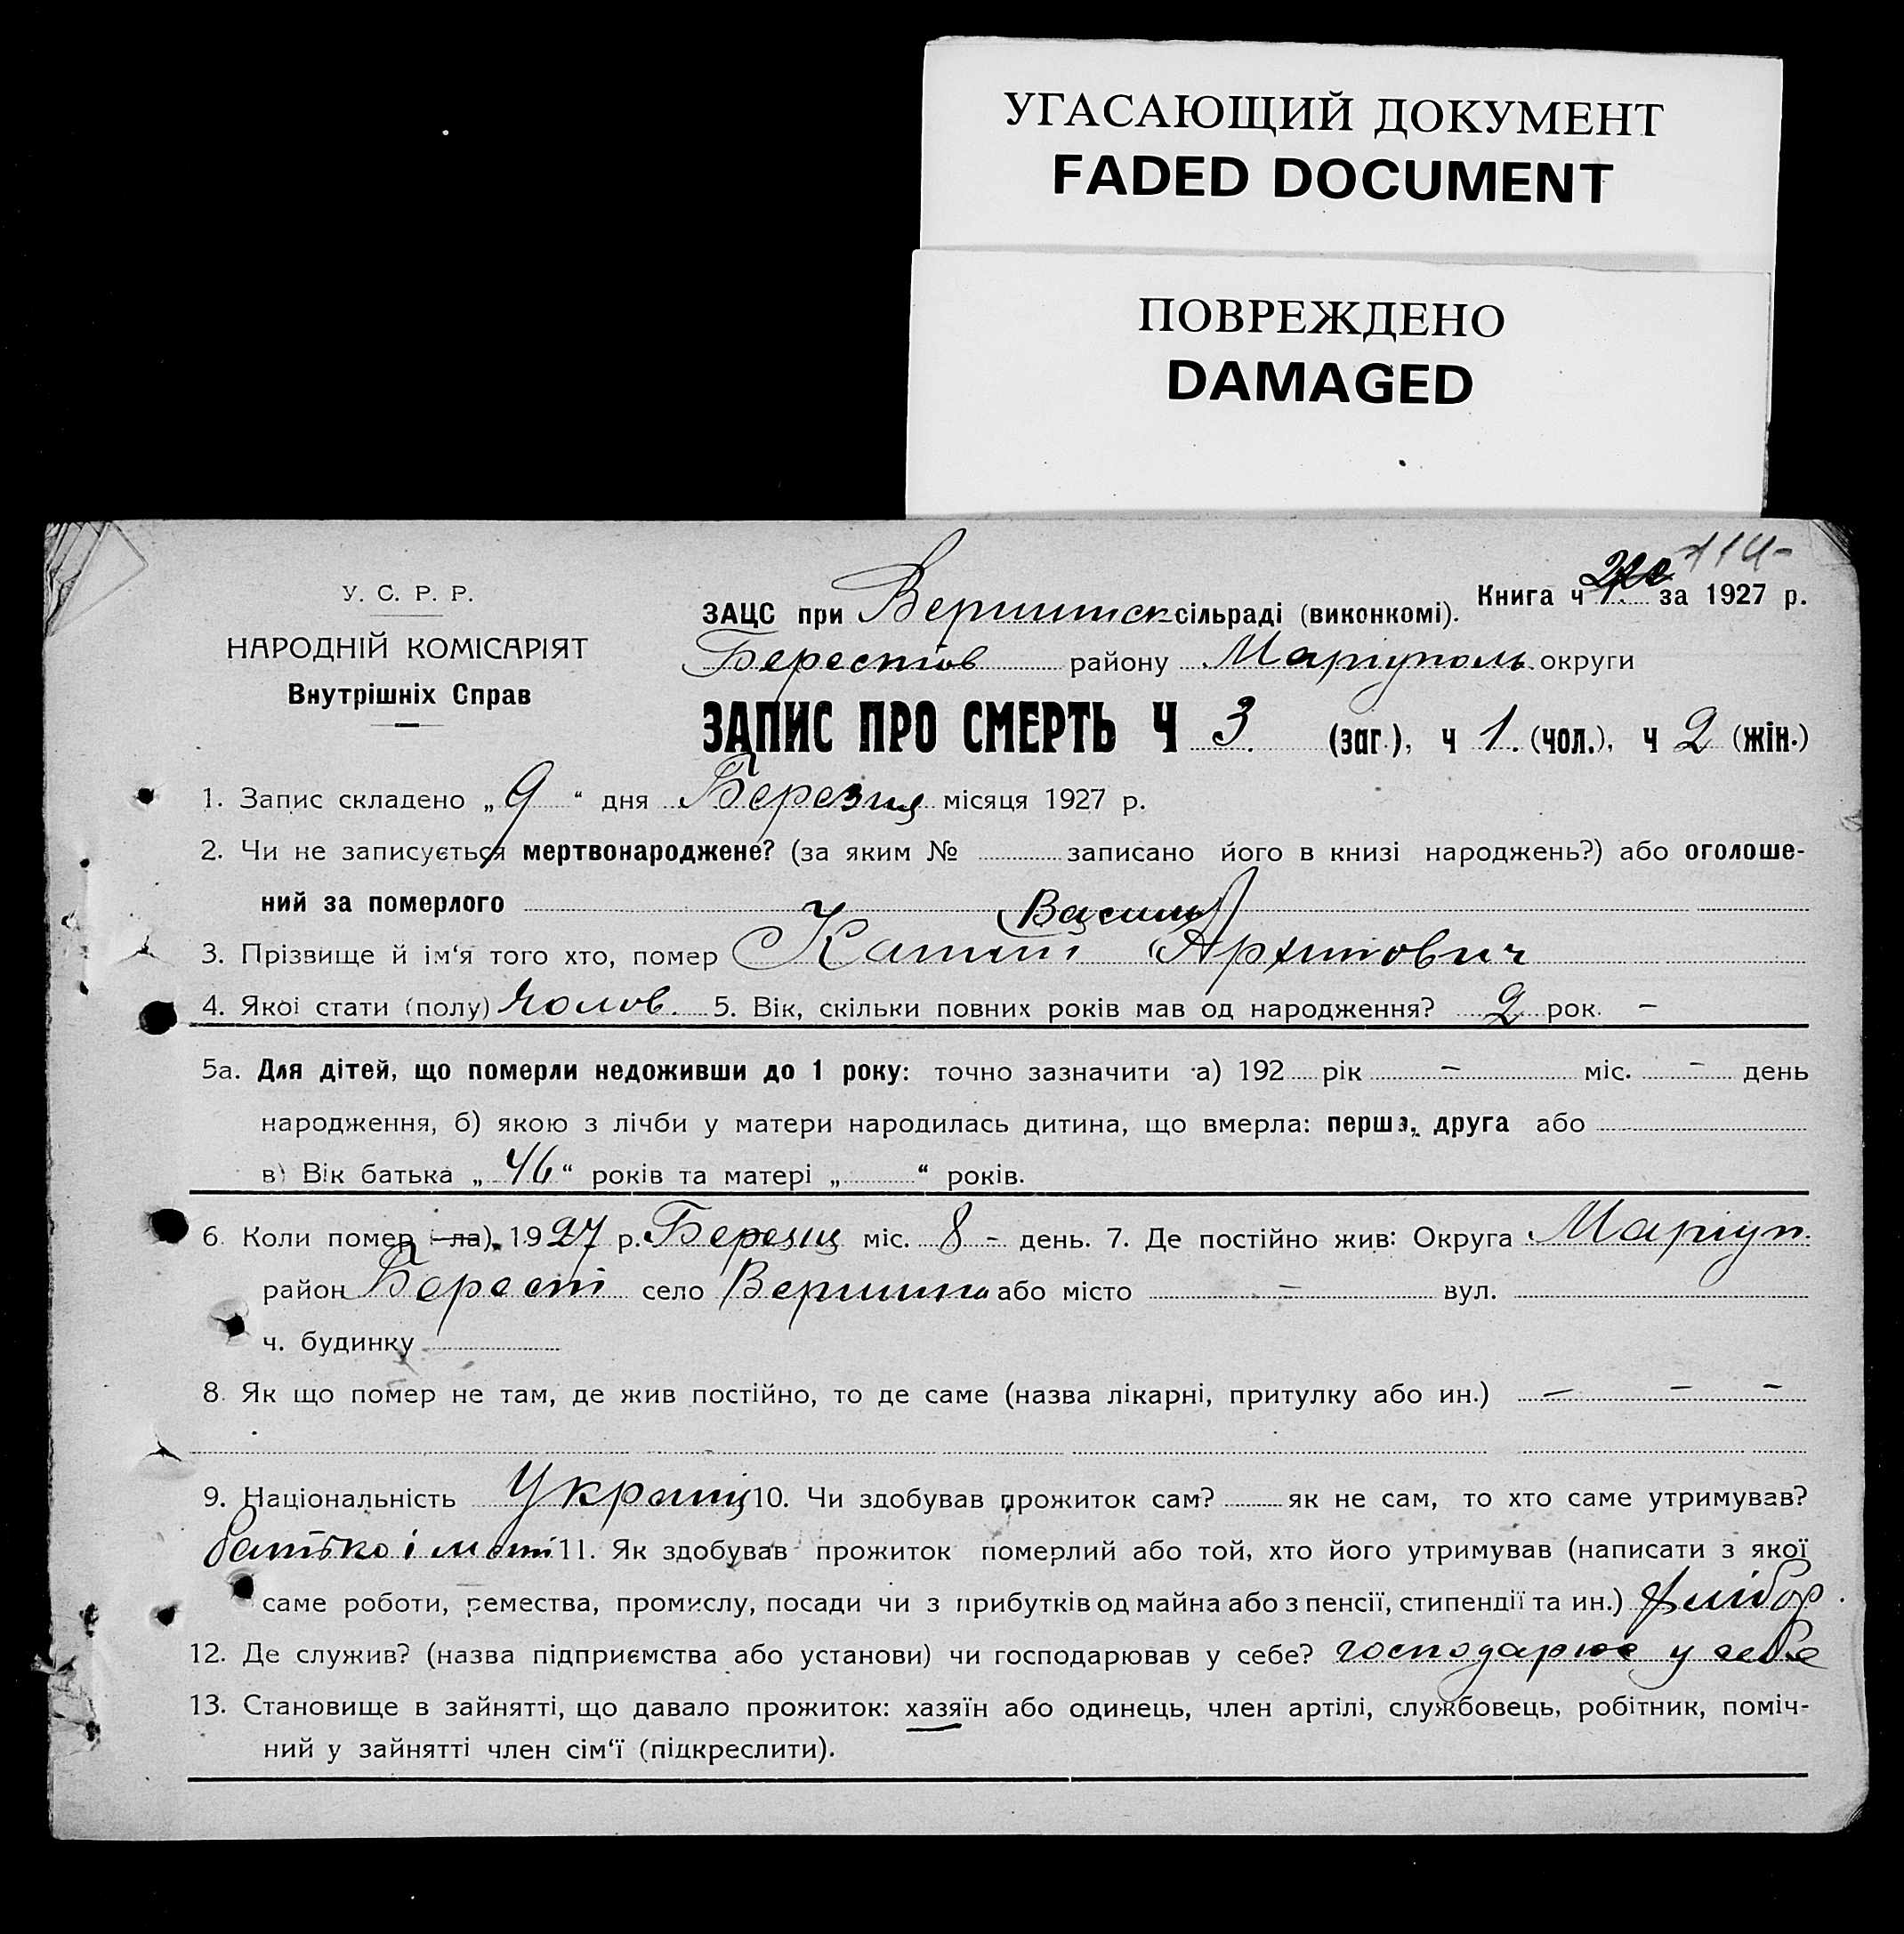 УГАСАЮЩИЙ ДОКУМЕНТ
FADED DOCUMENT
ПОВРЕЖДЕНО
DAMAGED
114-
У. С. Р. Р.
НАРОДНІЙ КОМІСАРІЯТ
Внутрішніх Справ
Книга ч 1. за 1927 р.
ЗАЦС при Вершинск сільраді (виконкомі).
Берестов району Маріуполь округи
ЗАПИС ПРО СМЕРТЬ Ч 3 (заг.), ч 1. (чол.), ч 2 (жін.)
1. Запис складено „ 9 “ дня Березня місяця 1927 р.
2. Чи не записується мертвонароджене? (за яким № записано його в книзі народжень?) або оголоше-
ний за померлого
Василь
3. Прізвище й ім‘я того хто, помер Архипович
4. Якої стати (полу) Чолов. 5. Вік, скільки повних років мав од народження? 2 рок. –
5а. Для дітей, що померли недоживши до 1 року: точно зазначити а) 192 рік – міс. – день
народження, б) якою з лічби у матери народилась дитина, що вмерла: перша, друга або
в) Вік батька „ 46 “ років та матері „ “ років.
6. Коли помер (-ла). 1927 р. Березня міс. 8 – день. 7. Де постійно жив: Округа Маріуп.
район Берест село Вершина або місто – вул.
ч. будинку
8. Як що помер не там, де жив постійно, то де саме (назва лікарні, притулку або ин.) – – –
9. Національність Украинц 10. Чи здобував прожиток сам? як не сам, то хто саме утримував?
батько і мати 11. Як здобував прожиток померлий або той, хто його утримував (написати з якої
саме роботи, ремества, промислу, посади чи з прибутків од майна або з пенсії, стипендії та ин.) хлібор.
12. Де служив? (назва підприємства або установи) чи господарював у себе? господарює у себе
13. Становище в зайнятті, що давало прожиток: хазяїн або одинець, член артілі, службовець, робітник, поміч-
ний у зайнятті член сім‘ї (підкреслити).